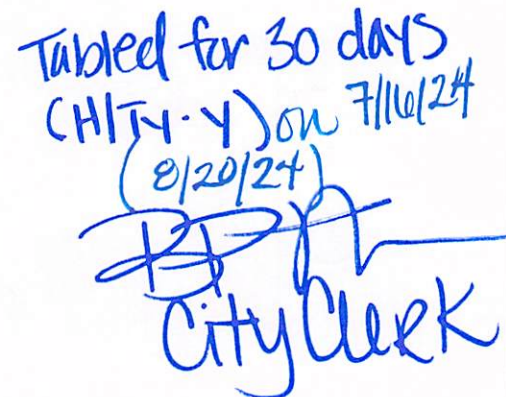 Tabled for 30 days
(H/Ty-Y) on 7/16/24
(8/20/24)
City Clerk